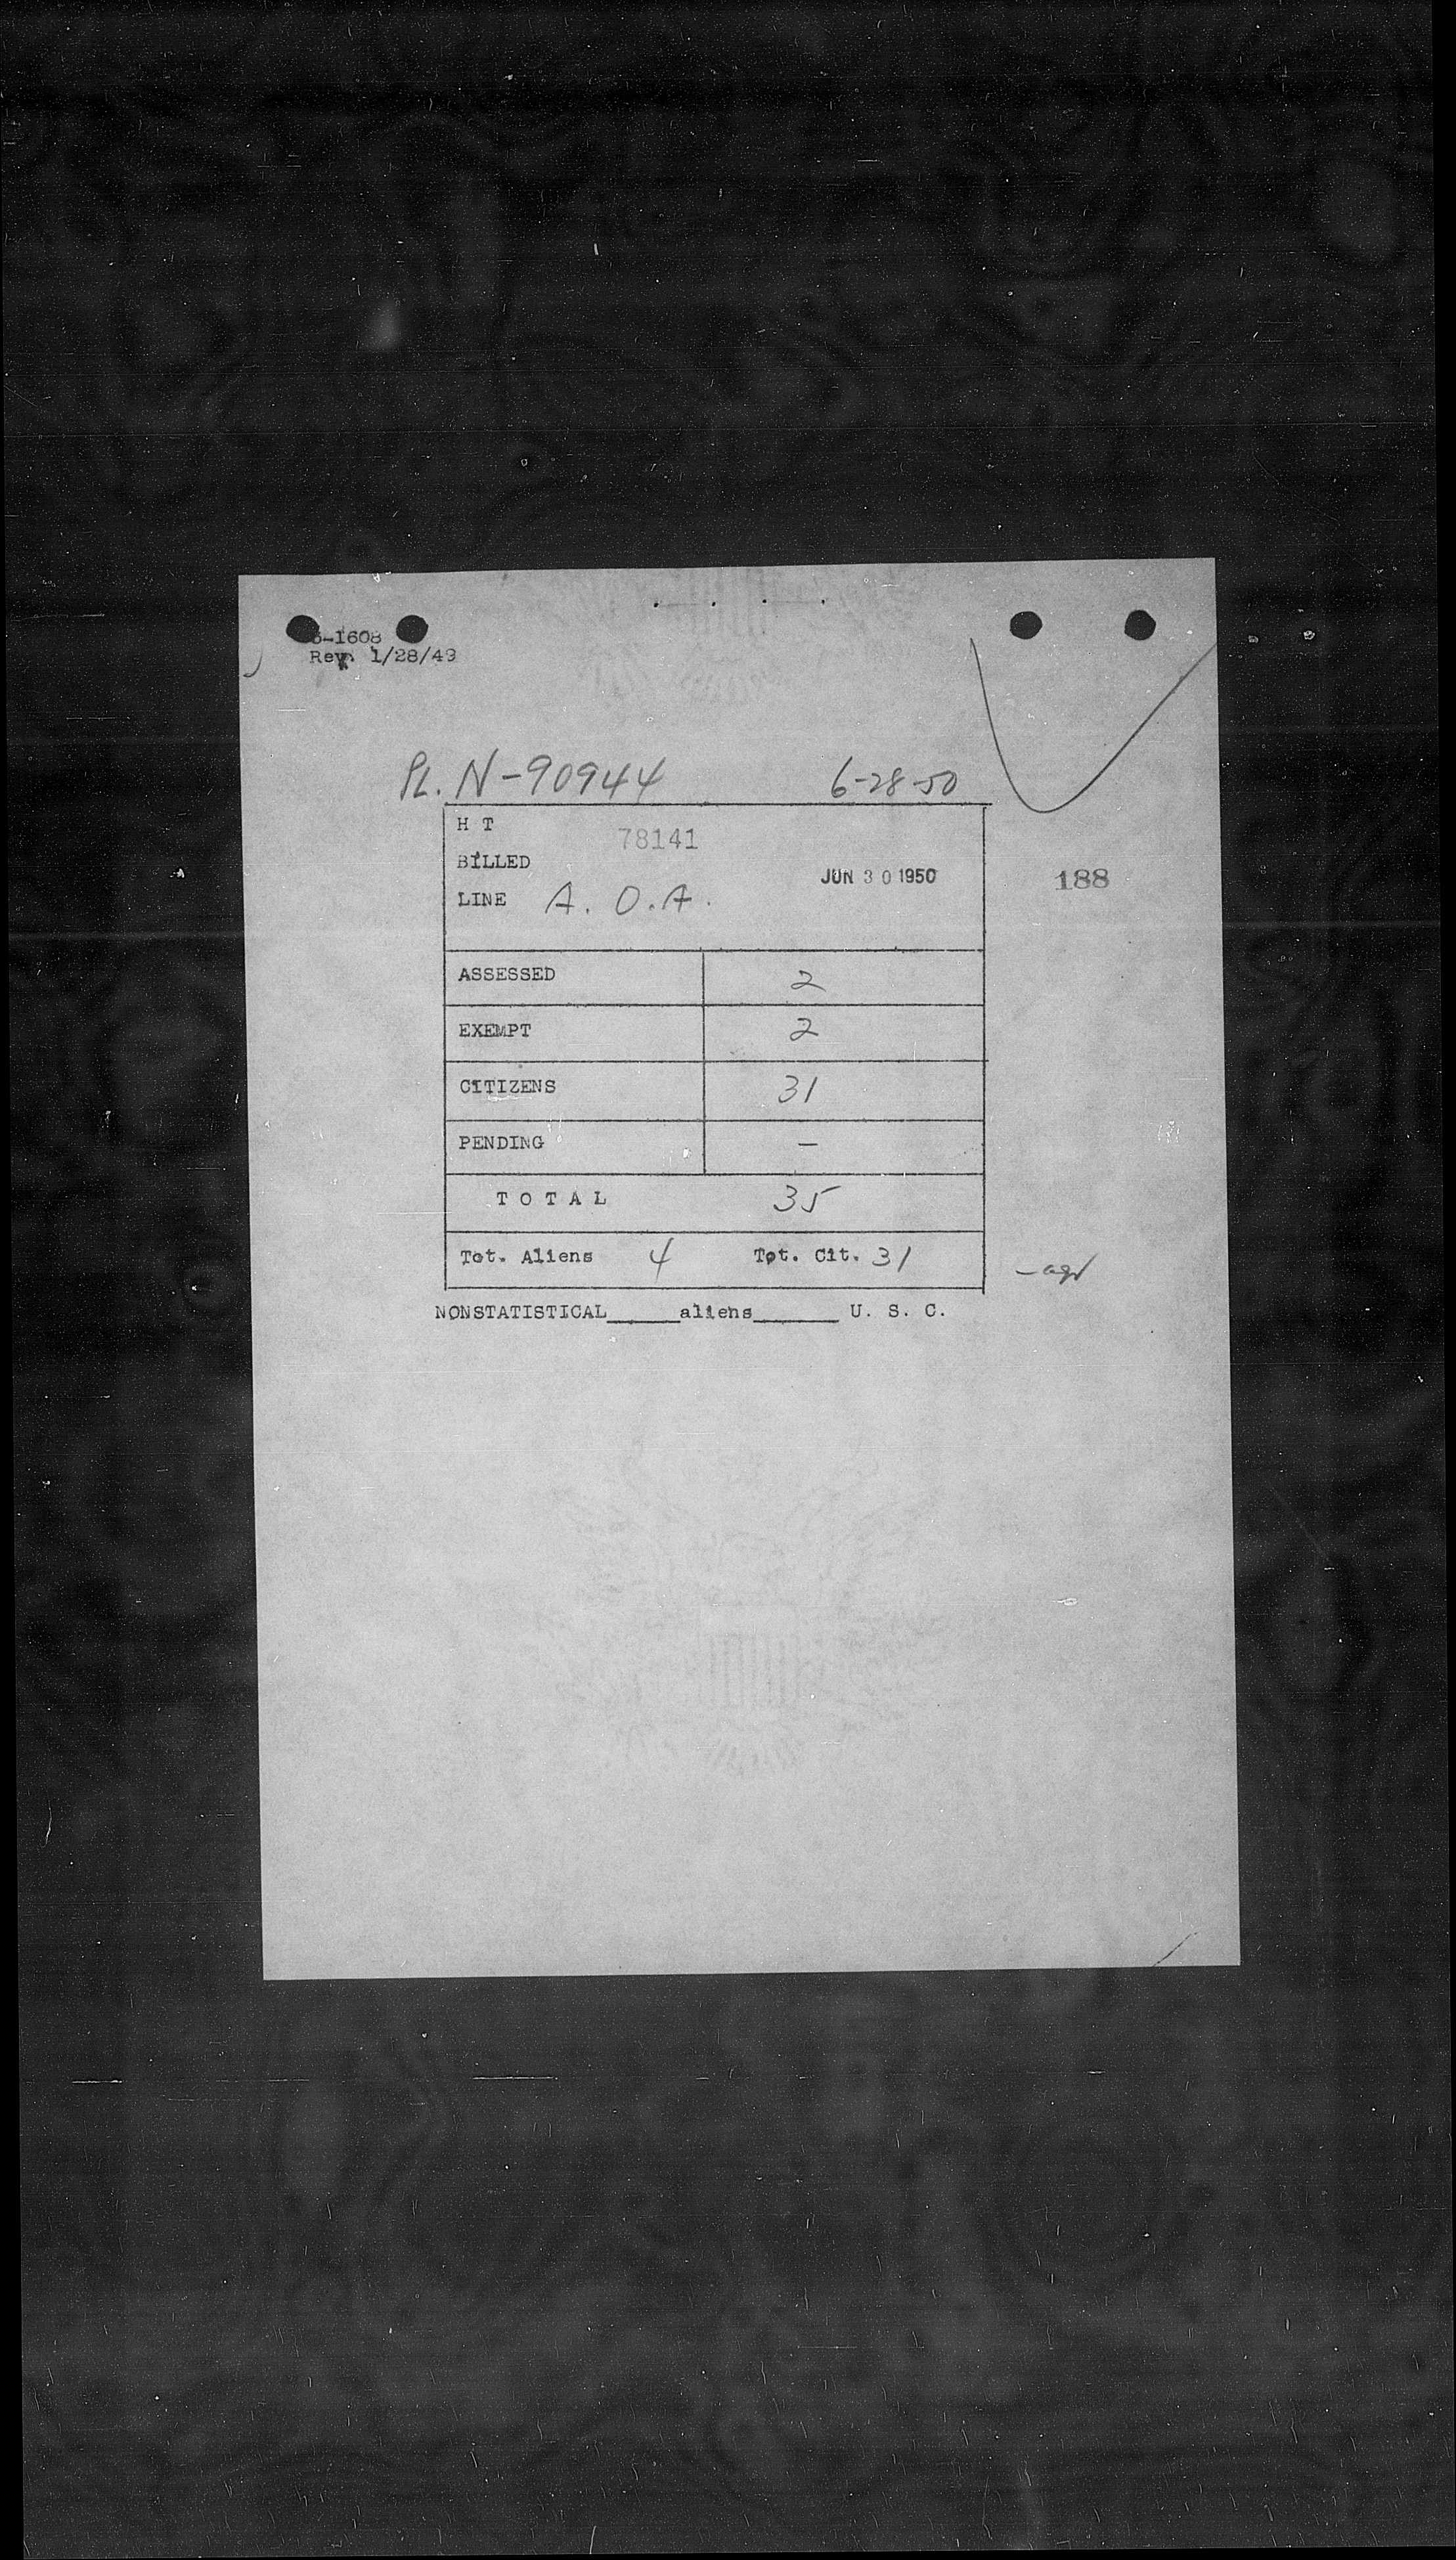 6-1608
Rev. 1/28/49
Pl. N-90944 6-28-50
H T
78141
BILLED
JUN 30 1950
188
LINE A. O. A.
ASSESSED 2
EXEMPT 2
CITIZENS 31
PENDING —
TOTAL 35
Tot. Aliens 4 Tot. Cit. 31
NONSTATISTICAL_____aliens______ U. S. C.